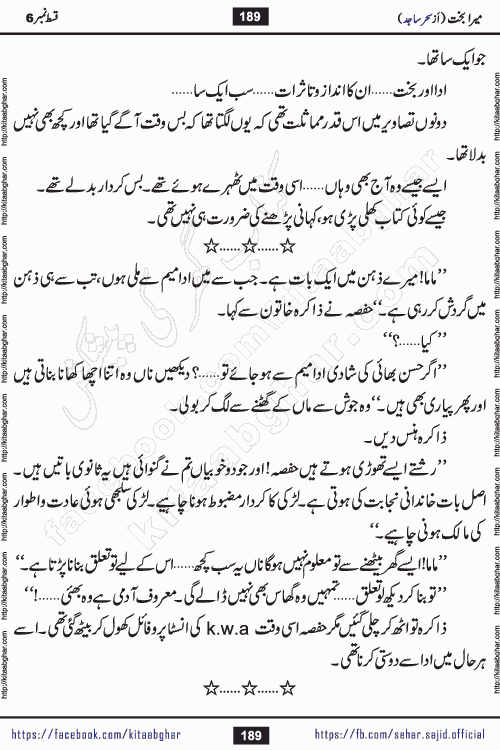 میرا بخت (از سحر ساجد)
189
قسط نمبر 6
جو ایک سا تھا۔
ادا اور بخت......ان کا انداز و تاثرات......سب ایک سا......
دونوں تصاویر میں اس قدر مماثلت تھی کہ یوں لگتا تھا کہ بس وقت آگے گیا تھا اور کچھ بھی نہیں
بدلا تھا۔
ایسے جیسے وہ آج بھی وہاں......اسی وقت میں ٹھہرے ہوئے تھے۔ بس کردار بدلے تھے۔
جیسے کوئی کتاب کھلی پڑی ہو، کہانی پڑھنے کی ضرورت ہی نہیں تھی۔
☆......☆......☆
’’ماما! میرے ذہن میں ایک بات ہے۔ جب سے میں ادا میم سے ملی ہوں، تب سے ہی ذہن
میں گردش کر رہی ہے۔‘‘ حفصہ نے ذاکرہ خاتون سے کہا۔
’’کیا......؟‘‘
’’اگر حسن بھائی کی شادی ادا میم سے ہو جائے تو......؟ دیکھیں ناں وہ اتنا اچھا کھانا بناتی ہیں
اور پھر پیاری بھی ہیں۔‘‘ وہ جوش سے ماں کے گھٹنے سے لگ کر بولی۔
ذاکرہ ہنس دیں۔
’’رشتے ایسے تھوڑی ہوتے ہیں حفصہ! اور جو دو خوبیاں تم نے گنوائی ہیں یہ ثانوی باتیں ہیں۔
اصل بات خاندانی نجابت کی ہوتی ہے۔ لڑکی کا کردار مضبوط ہونا چاہیے۔ لڑکی سلجھی ہوئی عادت و اطوار
کی مالک ہونی چاہیے۔‘‘
’’ماما! ایسے گھر بیٹھنے سے تو معلوم نہیں ہوگا ناں یہ سب کچھ......اس کے لیے تو تعلق بنانا پڑتا ہے۔‘‘
’’تو بنا کر دیکھ لو تعلق......تمہیں وہ گھاس بھی نہیں ڈالے گی۔ معروف آدمی ہے وہ بھئی......!‘‘
ذاکرہ تو اٹھ کر چلی گئیں مگر حفصہ اسی وقت k.w.a کی انسٹا پروفائل کھول کر بیٹھ گئی تھی۔ اسے
ہر حال میں ادا سے دوستی کرنا تھی۔
☆......☆......☆
https://facebook.com/kitaabghar
189
https://fb.com/sahar.sajid.official
http://kitaabghar.com
http://kitaabghar.com
http://kitaabghar.com
http://kitaabghar.com
http://kitaabghar.com
http://kitaabghar.com
http://kitaabghar.com
http://kitaabghar.com
کتاب گھر کی پیشکش
kitaabghar.com
facebook.com/kitaabghar